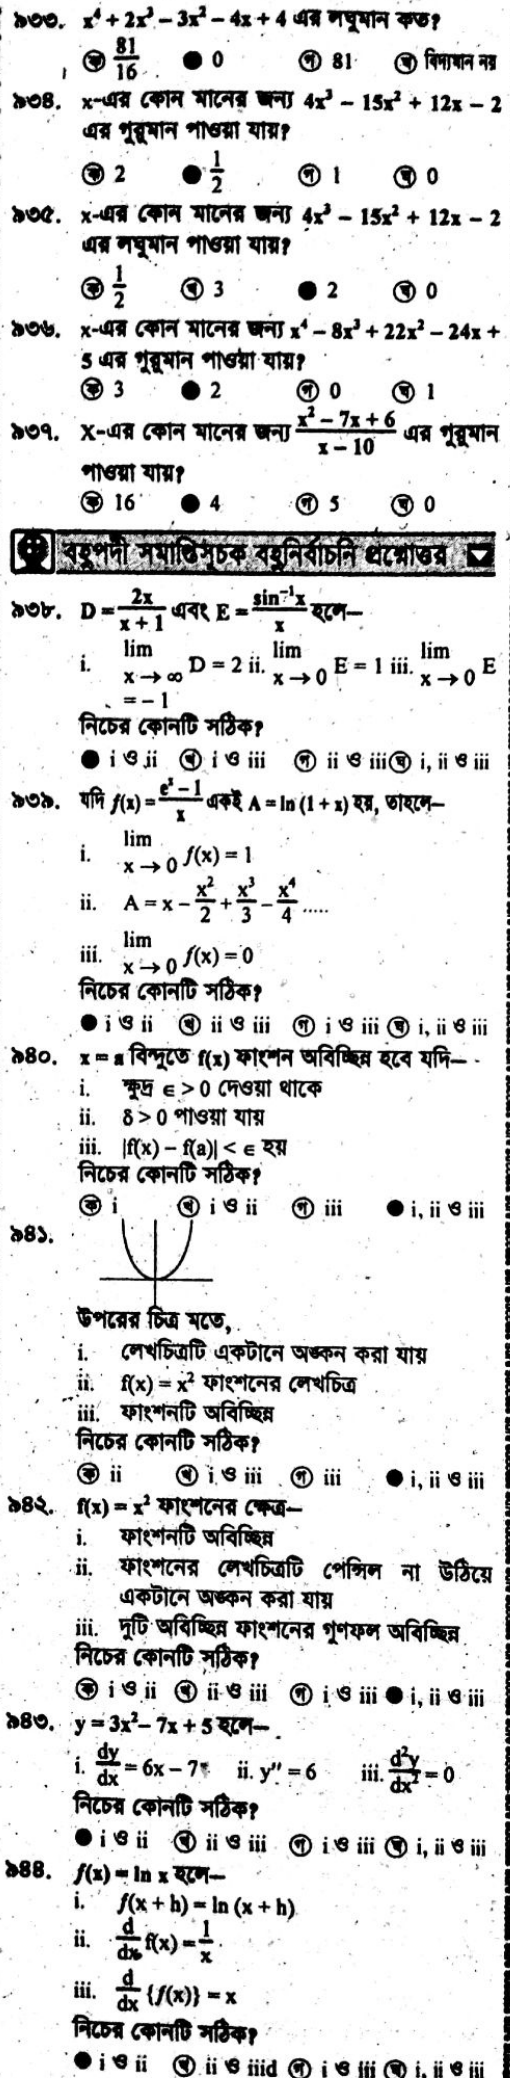 ৯৩৩. x⁴ + 2x³ − 3x² − 4x + 4 এর লঘুমান কত?
ক 81/16 ● 0 গ 81 ঘ বিদ্যমান নয়
৯৩৪. x-এর কোন মানের জন্য 4x³ − 15x² + 12x − 2
এর গুরুমান পাওয়া যায়?
ক 2 ● 1/2 গ 1 ঘ 0
৯৩৫. x-এর কোন মানের জন্য 4x³ − 15x² + 12x − 2
এর লঘুমান পাওয়া যায়?
ক 1/2 খ 3 ● 2 ঘ 0
৯৩৬. x-এর কোন মানের জন্য x⁴ − 8x³ + 22x² − 24x +
5 এর গুরুমান পাওয়া যায়?
ক 3 ● 2 গ 0 ঘ 1
৯৩৭. X-এর কোন মানের জন্য (x² − 7x + 6)/(x − 10) এর গুরুমান
পাওয়া যায়?
ক 16 ● 4 গ 5 ঘ 0
বহুপদী সমাপ্তিসূচক বহুনির্বাচনি প্রশ্নোত্তর
৯৩৮. D = 2x/(x + 1) এবং E = sin⁻¹x/x হলে—
i. lim x → ∞ D = 2 ii. lim x → 0 E = 1 iii. lim x → 0 E
= − 1
নিচের কোনটি সঠিক?
● i ও ii খ i ও iii গ ii ও iii ঘ i, ii ও iii
৯৩৯. যদি f(x) = (eˣ − 1)/x একই A = ln (1 + x) হয়, তাহলে—
i. lim x → 0 f(x) = 1
ii. A = x − x²/2 + x³/3 − x⁴/4 .....
iii. lim x → 0 f(x) = 0
নিচের কোনটি সঠিক?
● i ও ii খ ii ও iii গ i ও iii ঘ i, ii ও iii
৯৪০. x = a বিন্দুতে f(x) ফাংশন অবিচ্ছিন্ন হবে যদি—
i. ক্ষুদ্র ∈ > 0 দেওয়া থাকে
ii. δ > 0 পাওয়া যায়
iii. |f(x) − f(a)| < ∈ হয়
নিচের কোনটি সঠিক?
ক i খ i ও ii গ iii ● i, ii ও iii
৯৪১.
উপরের চিত্র মতে,
i. লেখচিত্রটি একটানে অঙ্কন করা যায়
ii. f(x) = x² ফাংশনের লেখচিত্র
iii. ফাংশনটি অবিচ্ছিন্ন
নিচের কোনটি সঠিক?
ক ii খ i ও iii গ iii ● i, ii ও iii
৯৪২. f(x) = x² ফাংশনের ক্ষেত্রে—
i. ফাংশনটি অবিচ্ছিন্ন
ii. ফাংশনের লেখচিত্রটি পেন্সিল না উঠিয়ে
একটানে অঙ্কন করা যায়
iii. দুটি অবিচ্ছিন্ন ফাংশনের গুণফল অবিচ্ছিন্ন
নিচের কোনটি সঠিক?
ক i ও ii খ ii ও iii গ i ও iii ● i, ii ও iii
৯৪৩. y = 3x² − 7x + 5 হলে—
i. dy/dx = 6x − 7 ii. y″ = 6 iii. d²y/dx² = 0
নিচের কোনটি সঠিক?
● i ও ii খ ii ও iii গ i ও iii ঘ i, ii ও iii
৯৪৪. f(x) = ln x হলে—
i. f(x + h) = ln (x + h)
ii. d/dx f(x) = 1/x
iii. d/dx {f(x)} = x
নিচের কোনটি সঠিক?
● i ও ii খ ii ও iiid গ i ও iii ঘ i, ii ও iii